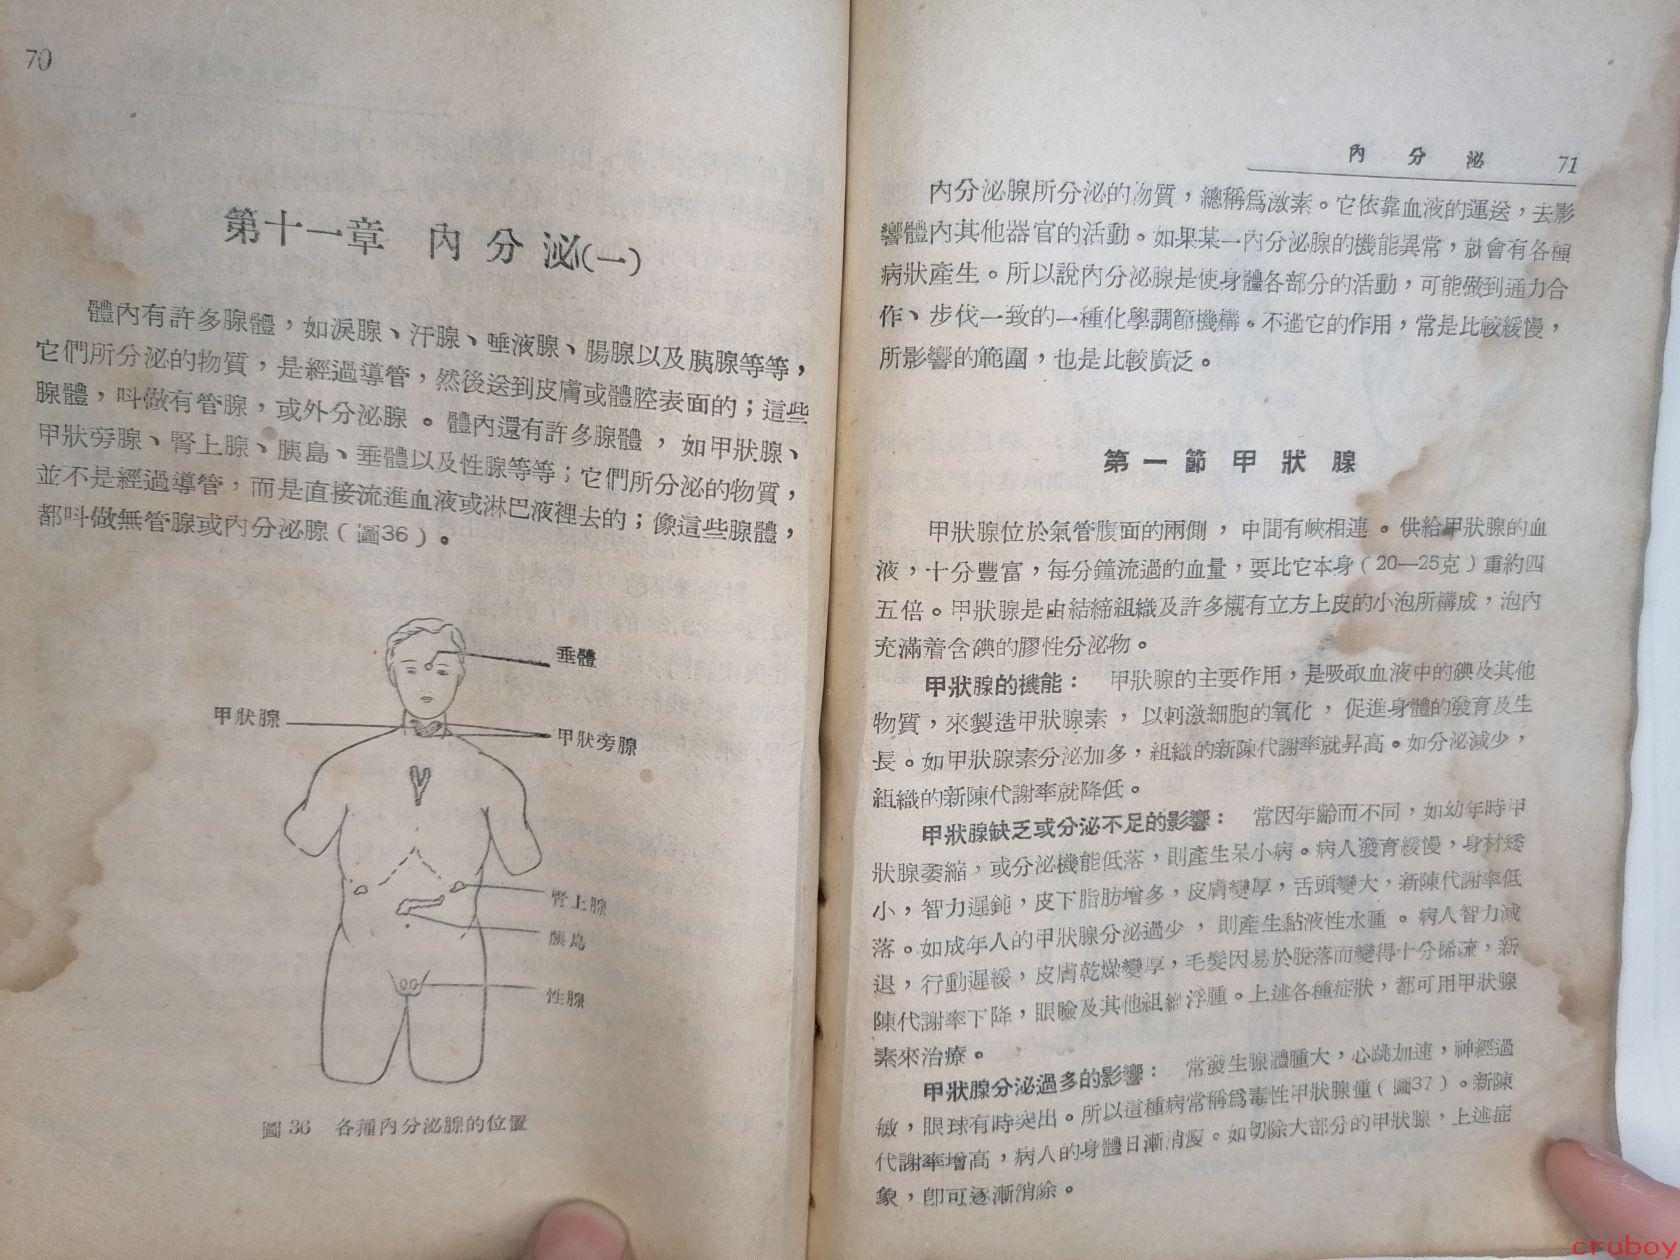 70
第十一章 內分泌(一)
體內有許多腺體，如淚腺、汗腺、唾液腺、腸腺以及胰腺等等，
它們所分泌的物質，是經過導管，然後送到皮膚或體腔表面的；這些
腺體，叫做有管腺，或外分泌腺。體內還有許多腺體，如甲狀腺、
甲狀旁腺、腎上腺、胰島、垂體以及性腺等等；它們所分泌的物質，
並不是經過導管，而是直接流進血液或淋巴液裡去的；像這些腺體，
都叫做無管腺或內分泌腺(圖36)。
垂體
甲狀腺
甲狀旁腺
腎上腺
胰島
性腺
圖 36 各種內分泌腺的位置
內分泌 71
內分泌腺所分泌的物質，總稱爲激素。它依靠血液的運送，去影
響體內其他器官的活動。如果某一內分泌腺的機能異常，就會有各種
病狀產生。所以說內分泌腺是使身體各部分的活動，可能做到通力合
作、步伐一致的一種化學調節機構。不過它的作用，常是比較緩慢，
所影響的範圍，也是比較廣泛。
第一節 甲狀腺
甲狀腺位於氣管腹面的兩側，中間有峽相連。供給甲狀腺的血
液，十分豐富，每分鐘流過的血量，要比它本身(20—25克)重約四
五倍。甲狀腺是由結締組織及許多襯有立方上皮的小泡所構成，泡內
充滿着含碘的膠性分泌物。
甲狀腺的機能： 甲狀腺的主要作用，是吸取血液中的碘及其他
物質，來製造甲狀腺素，以刺激細胞的氧化，促進身體的發育及生
長。如甲狀腺素分泌加多，組織的新陳代謝率就昇高。如分泌減少，
組織的新陳代謝率就降低。
甲狀腺缺乏或分泌不足的影響： 常因年齡而不同，如幼年時甲
狀腺萎縮，或分泌機能低落，則產生呆小病。病人發育緩慢，身材矮
小，智力遲鈍，皮下脂肪增多，皮膚變厚，舌頭變大，新陳代謝率低
落。如成年人的甲狀腺分泌過少，則產生黏液性水腫。病人智力減
退，行動遲緩，皮膚乾燥變厚，毛髮因易於脫落而變得十分稀疏，新
陳代謝率下降，眼瞼及其他組織浮腫。上述各種症狀，都可用甲狀腺
素來治療。
甲狀腺分泌過多的影響： 常發生腺體腫大，心跳加速，神經過
敏，眼球有時突出。所以這種病常稱爲毒性甲狀腺腫(圖37)。新陳
代謝率增高，病人的身體日漸消瘦。如切除大部分的甲狀腺，上述症
象，卽可逐漸消除。
cruboy